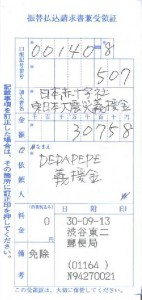 振替払込請求書兼受領証
口座記号番号
00140 8
507
加入者名
日本赤十字社
東日本大震災義援金
金額
千 百 十 万 千 百 十 円
30758
ご依頼人
おなまえ
DEPAPEPE
義援金
料金
0
日附印
30-09-13
渋谷東二
郵便局
備考
免除
(01164)
N94270021
記載事項を訂正した場合は、その箇所に訂正印を押してください。
この受領証は、大切に保管してください。